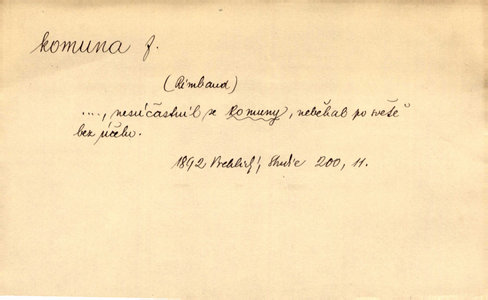 komuna f.
(Rimbaud)
...., nesúčastnil se Komuny, neběhal po světě
bez účelu.
1892 Vrchlický, Studie 200, 11.